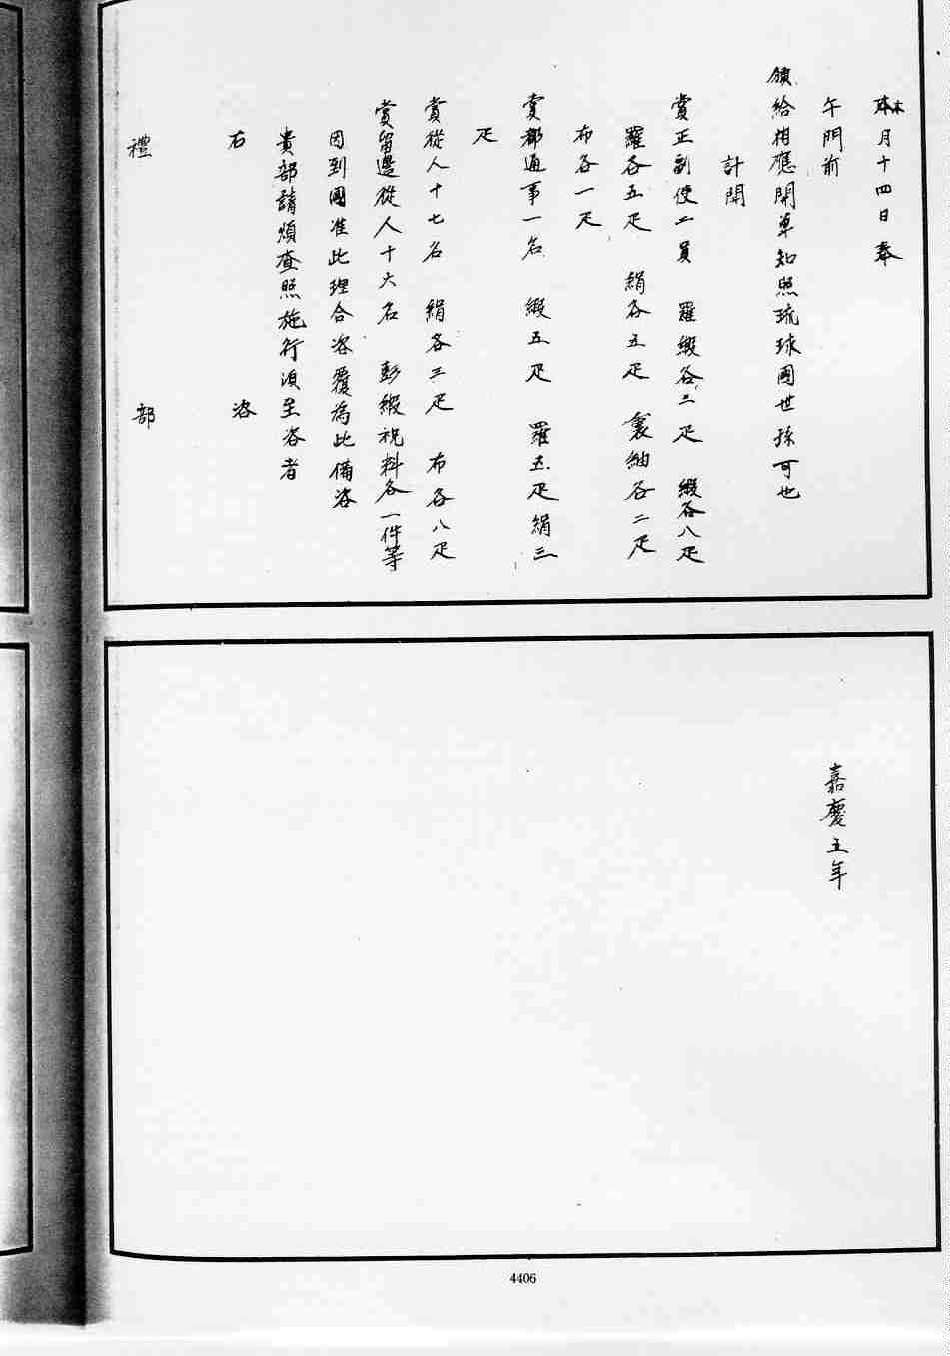 本月十四日奉
午門前
頒給相應開單知照琉球國世孫可也
計開
賞正副使二員 羅緞各三疋 緞各八疋
羅各五疋 絹各五疋 裏紬各二疋
布各一疋
賞都通事一名 緞五疋 羅五疋 絹三
疋
賞從人十七名 絹各三疋 布各八疋
賞留邊從人十六名 彭緞袍料各一件等
因到國准此理合咨覆為此備咨
貴部請煩查照施行須至咨者
右 咨
禮 部
嘉慶五年
4406